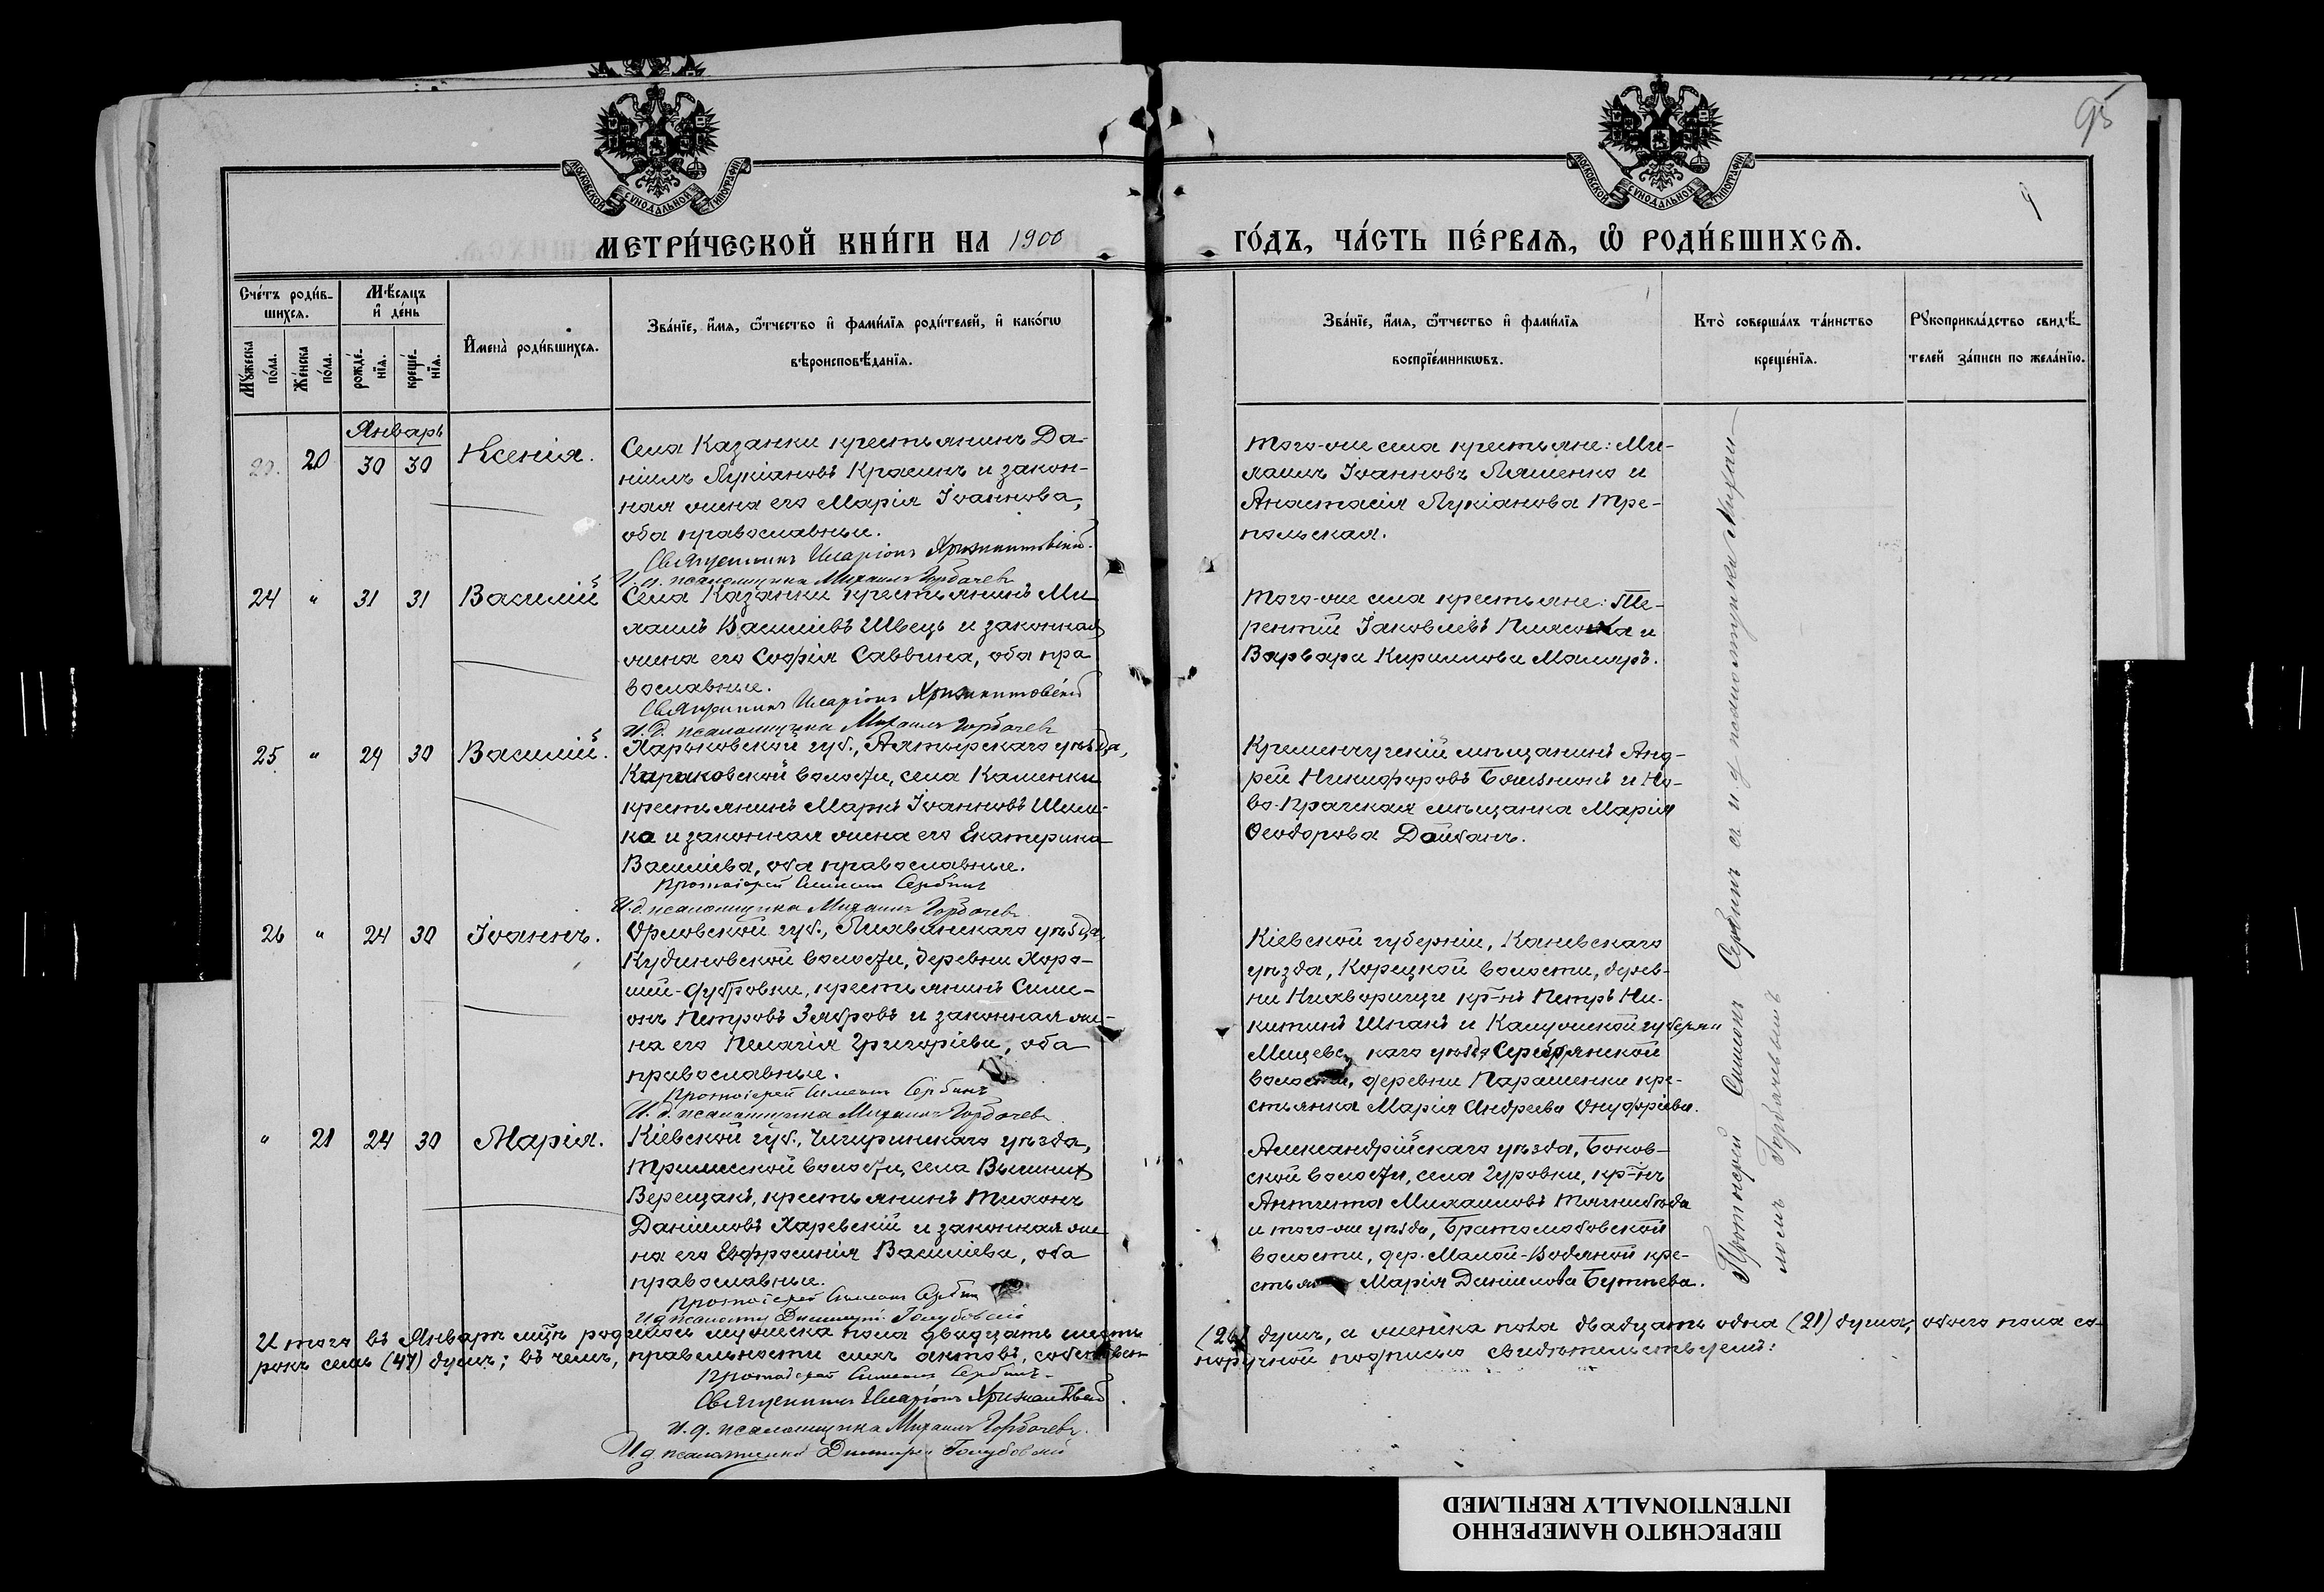 95
9
МОСКОВСКОЙ СѴНОДАЛЬНОЙ ТИПОГРАФІИ
МОСКОВСКОЙ СѴНОДАЛЬНОЙ ТИПОГРАФІИ
МЕТРИ́ЧЕСКОЙ КНИ́ГИ НА 1900
ГО́ДЪ, ЧА́СТЬ ПЕ́РВАѦ, Ѽ РОДИ́ВШИХСѦ.
Сче́тъ роди́в-
шихсѧ.
Мꙋ́жеска по́ла.
Же́нска по́ла.
Мѣ́сѧцъ
и҆ де́нь
рожде́-
нїѧ.
креще́-
нїѧ.
И҆мена̀ роди́вшихсѧ.
Зва́нїе, и҆́мѧ, ѻ҆́тчество и҆ фами́лїѧ роди́телей, и҆ како́гѡ
вѣроисповѣ́данїѧ.
Зва́нїе, и҆́мѧ, ѻ҆́тчество и҆ фами́лїѧ
воспрїе́мникѡвъ.
Кто̀ соверша́лъ та́инство
креще́нїѧ.
Рꙋкоприкла́дство свидѣ́-
телей за́писи по жела́нїю.
Январь
20. 20 30 30 Ксенія.
Села Казанки крестьянинъ Да-
ніилъ Лукіановъ Красинъ и закон-
ная жена его Марія Іоаннова,
оба православные.
Священникъ Иларіонъ
И. д. псаломщика Михаилъ Горбачевъ
Того-же села крестьяне: Ми-
хаилъ Іоанновъ Ляшенко и
Анастасія Лукіанова Тре-
польская.
24 " 31 31 Василій
Села Казанки крестьянинъ Ми-
хаилъ Василіевъ Швецъ и законная
жена его Софія Саввина, оба пра
вославные.
Священникъ Иларіонъ
И. д. псаломщика Михаилъ Горбачевъ
Того-же села крестьяне: Те-
рентій Іаковлевъ и
Варвара Кириллова Маляръ.
25 " 29 30 Василій.
Харьковской губ., Ахтырскаго уѣзда,
волости, села Каменки
крестьянинъ Маркъ Іоанновъ
ка и законная жена его Екатерина
Василіева, оба православные.
Протоіерей Симеонъ Сербинъ
И. д. псаломщика Михаилъ Горбачевъ
Кременчугскій мѣщанинъ Анд-
рей Никифоровъ и Но-
во-Прагская мѣщанка Марія
Ѳеодорова Дайбанъ.
26 " 24 30 Іоаннъ.
Орловской губ., уѣзда,
Кудиновской волости, деревни Хоро-
шей-Дубровки, крестьянинъ Симе-
онъ Петровъ Зябровъ и законная же-
на его Пелагія Григоріева, оба
православные.
Протоіерей Симеонъ Сербинъ
И. д. псаломщика Михаилъ Горбачевъ
Кіевской губерніи, Каневскаго
уѣзда, Корецкой волости, дерев-
ни кр-нъ Петръ Ни-
китинъ Шпакъ и Калужской губерніи
Мещевскаго уѣзда Серебрянской
волости, деревни Парашенки кре-
стьянка Марія Андреева Онуфріева.
" 21 24 30 Марія.
Кіевской губ., Чигиринскаго уѣзда,
волости, села
Верещакъ, крестьянинъ Тихонъ
Даніиловъ Харевскій и законная же
на его Евфросинія Василіева, оба
православные.
Протоіерей Симеонъ Сербинъ
И д псаломщ Димитрій Голубовскій
Александрійскаго уѣзда, Боков-
ской волости, села Гуровки, кр-нъ
Михаиловъ
и того-же уѣзда, Братолюбовской
волости, дер. Малой-Водяной кре-
стьянка Марія Даніилова Бутнева.
Протоіерей Симеонъ Сербинъ съ и д псаломщика Михаи-
ломъ Горбачевымъ
Итого въ Январѣ мѣс родилось мужеска пола двадцать шесть (26) душъ, а женска пола двадцать одна (21) душа, обоего пола со-
рокъ семь (47) душъ; въ чемъ, правельности сихъ актовъ, собственноручной подписью свидѣтельствуемъ:
Протоіерей Симеонъ Сербинъ
Священникъ Иларіонъ
И. д. псаломщика Михаилъ Горбачевъ.
И д псаломщика Димитрій Голубовскій
ПЕРЕСНЯТО НАМЕРЕННО
INTENTIONALLY REFILMED